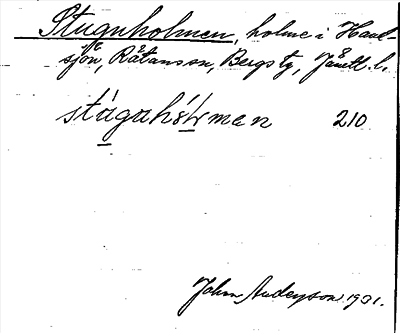 Stugnholmen, holme i Havel-
sjön, Råtans sn, Bergs tg, Jämtl. l.
210
John Anderson 1931.